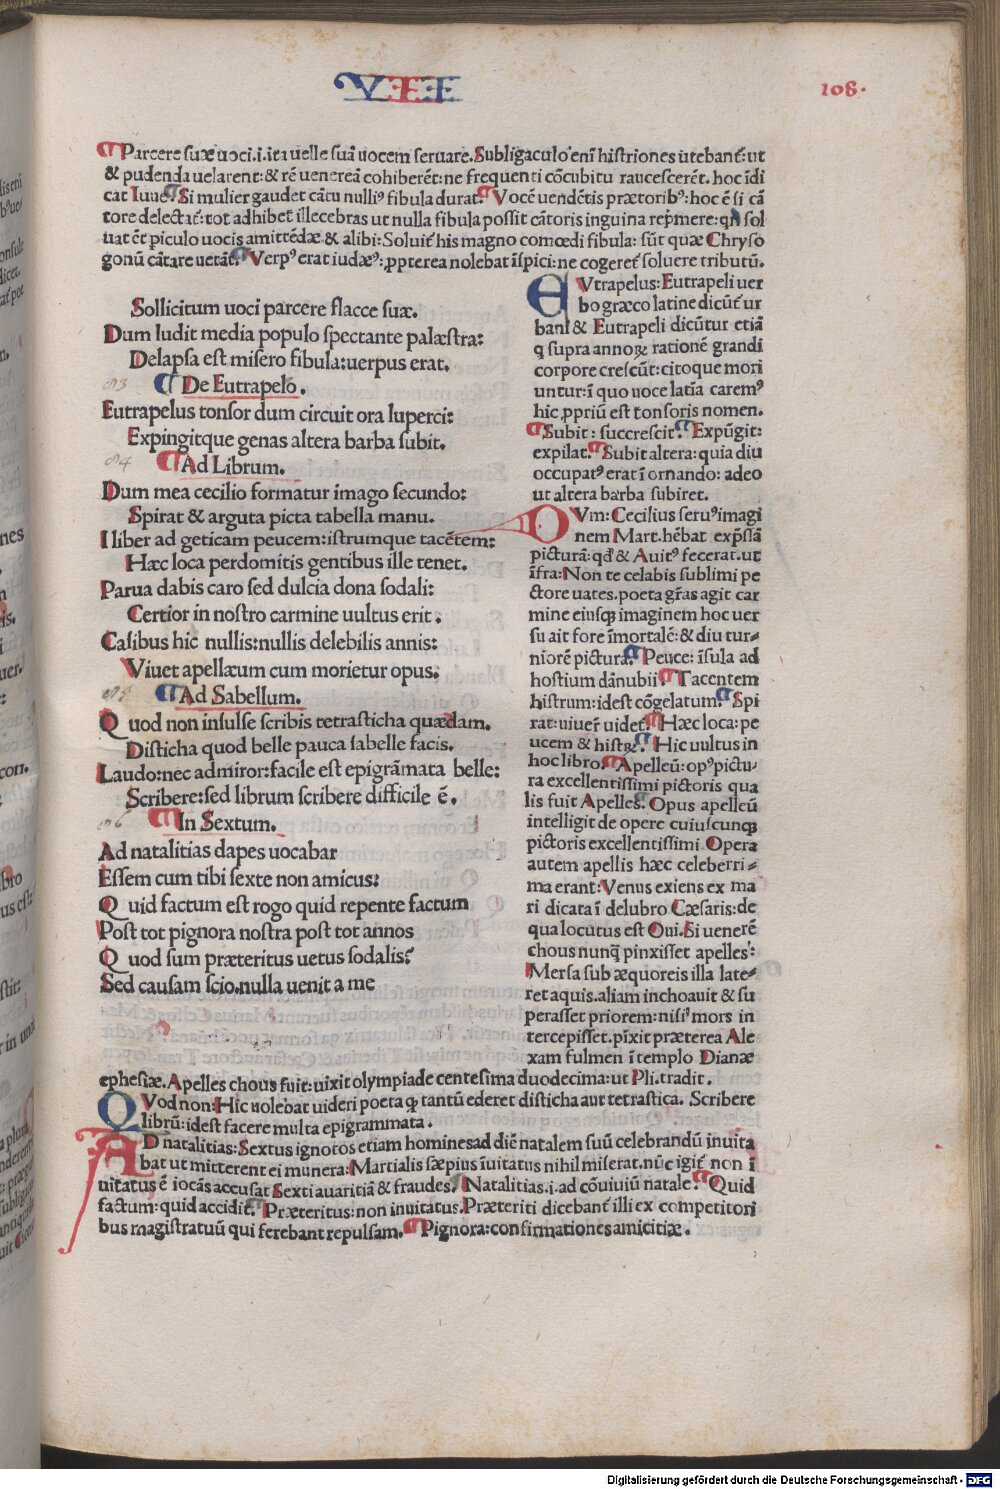 VII
108.
¶Parcere suæ uoci.i.ita uelle suã uocem seruare.Subligaculo enĩ histriones utebant᷑:ut
& pudenda uelarent:& rẽ uenereã cohiberẽt:ne frequenti cõcubitu raucescerẽt.hoc ĩdi
cat Iuue¶Si mulier gaudet cãtu nulliꝰ fibula durat.¶Vocẽ uendẽtis prætoribꝰ:hoc ẽ si cã
tore delectat᷑:tot adhibet illecebras ut nulla fibula possit cãtoris inguina rep̃mere:qñ sol
uat᷑ cũ piculo uocis amittẽdæ & alibi:Soluit᷑ his magno comœdi fibula:sũt quæ Chryso
gonũ cãtare uetãt.¶Verpꝰ erat iudæꝰ:ꝓpterea nolebat ĩspici:ne cogeret᷑ soluere tributũ.
Sollicitum uoci parcere flacce suæ.
Dum ludit media populo spectante palæstra:
Delapsa est misero fibula:uerpus erat.
¶De Eutrapelo.
Eutrapelus tonsor dum circuit ora luperci:
Expingitque genas altera barba subit.
¶Ad Librum.
Dum mea cecilio formatur imago secundo:
Spirat & arguta picta tabella manu.
I liber ad geticam peucem:istrumque tacẽtem:
Hæc loca perdomitis gentibus ille tenet.
Parua dabis caro sed dulcia dona sodali:
Certior in nostro carmine uultus erit.
Casibus hic nullis:nullis delebilis annis:
Viuet apellæum cum morietur opus.
¶Ad Sabellum.
Quod non insulse scribis tetrasticha quædam.
Disticha quod belle pauca sabelle facis.
Laudo:nec admiror:facile est epigrãmata belle:
Scribere:sed librum scribere difficile ẽ.
¶In Sextum.
Ad natalitias dapes uocabar
Essem cum tibi sexte non amicus:
Quid factum est rogo quid repente factum
Post tot pignora nostra post tot annos
Quod sum præteritus uetus sodalis?
Sed causam scio.nulla uenit a me
EVtrapelus:Eutrapeli uer
bo græco latine dicũt᷑ ur
bani & Eutrapeli dicũtur etiã
q supra annoꝝ rationẽ grandi
corpore crescũt:citoque mori
untur:ĩ quo uoce latĩa caremꝰ
hic ꝓpriũ est tonsoris nomen.
¶Subit:succrescit.¶Expũgit:
expilat.¶Subit altera:quia diu
occupatꝰ erat ĩ ornando:adeo
ut altera barba subiret.
DVm:Cecilius seruꝰ imagi
nem Mart.hẽbat exp̃ssã
picturã:qđ & Auitꝰ fecerat.ut
ĩfra:Non te celabis sublimi pe
ctore uates.poeta gr̃as agit car
mine eiusqꝫ imaginem hoc uer
su ait fore ĩmortalẽ:& diutur=
niorẽ pictura.¶Peuce:ĩsula ad
hostium dãnubii¶Tacentem
histrum:idest cõgelatum.¶Spi
rat:uiuer̃ uidet᷑.¶Hæc loca:pe
ucem & histꝝ.¶Hic uultus in
hoc libro.¶Apelleũ:opꝰ pictu=
ra excellentissimi pictoris qua
lis fuit Apelles.¶Opus apelleũ
intelligit de opere cuiuscunqꝫ
pictoris excellentissimi.Opera
autem apellis hæc celeberri=
ma erant:Venus exiens ex ma
ri dicata ĩ delubro Cæsaris:de
qua locutus est Oui.Si uenerẽ
chous nunq̃ pinxisset apelles:
Mersa sub æquoreis illa late=
ret aquis.aliam inchoauit & su
perasset priorem:nisi mors in
tercepisset.pĩxit præterea Ale
xam fulmen ĩ templo Dianæ
ephesiæ.Apelles chous fuit:uixit olympiade centesima duodecima:ut Pli.tradit.
QVod non:Hic uolebat uideri poeta qꝫ tantũ ederet disticha aut tetrastica. Scribere
librũ:idest facere multa epigrammata.
AD natalitias:Sextus ignotos etiam homines ad diẽ natalem suũ celebrandũ inuita
bat ut mitterent ei munera:Martialis sæpius ĩuitatus nihil miserat.nũc igit᷑ non ĩ
uitatus ẽ iocãs accusat Sexti auaritiã & fraudes.¶Natalitias.i.ad cõuiuiũ natale.¶Quid
factum:quid accidit.¶Præteritus:non inuitatus.Præteriti dicebant᷑ illi ex competitori
bus magistratuũ qui ferebant repulsam.¶Pignora:confirmationes amicitiæ.
Digitalisierung gefördert durch die Deutsche Forschungsgemeinschaft - DFG